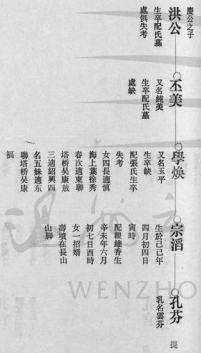 慶公之子
洪公
生卒配氏墓
處俱失考
丕美
又名純美
生卒配氏墓
處缺
學煥
又名玉平
生卒缺
配張氏生卒
失考
女四長適慎
海上葉徐秀
春次適東聯
塔橋吳康放
三適紹興四
名五妹適東
聯塔橋吳康
福
宗滔
生於己己年
四月初四日
寅時
配瞿綠香生
辛未年六月
初七日酉時
女一招婿
壽墳在長山
山脚
孔芬
乳名雲芬
WENZHO